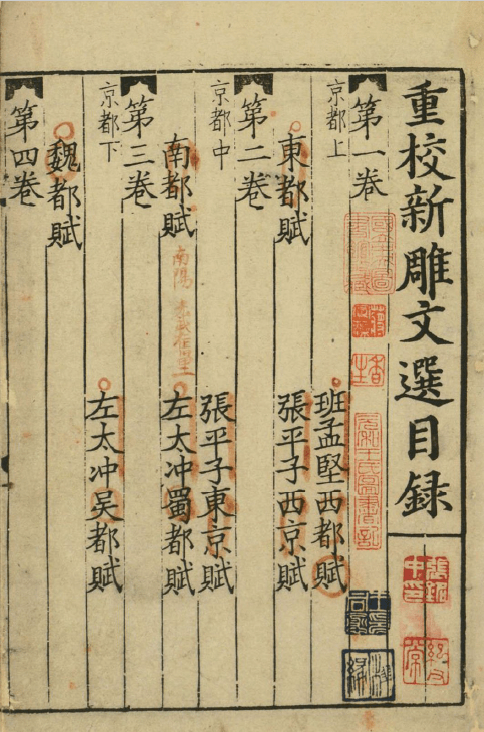 重校新雕文選目録
第一卷
京都上 班孟堅西都賦
東都賦 張平子西京賦
第二卷
京都中 張平子東京賦
南都賦 左太冲蜀都賦
南陽
第三卷
京都下 左太冲吴都賦
魏都賦
第四卷